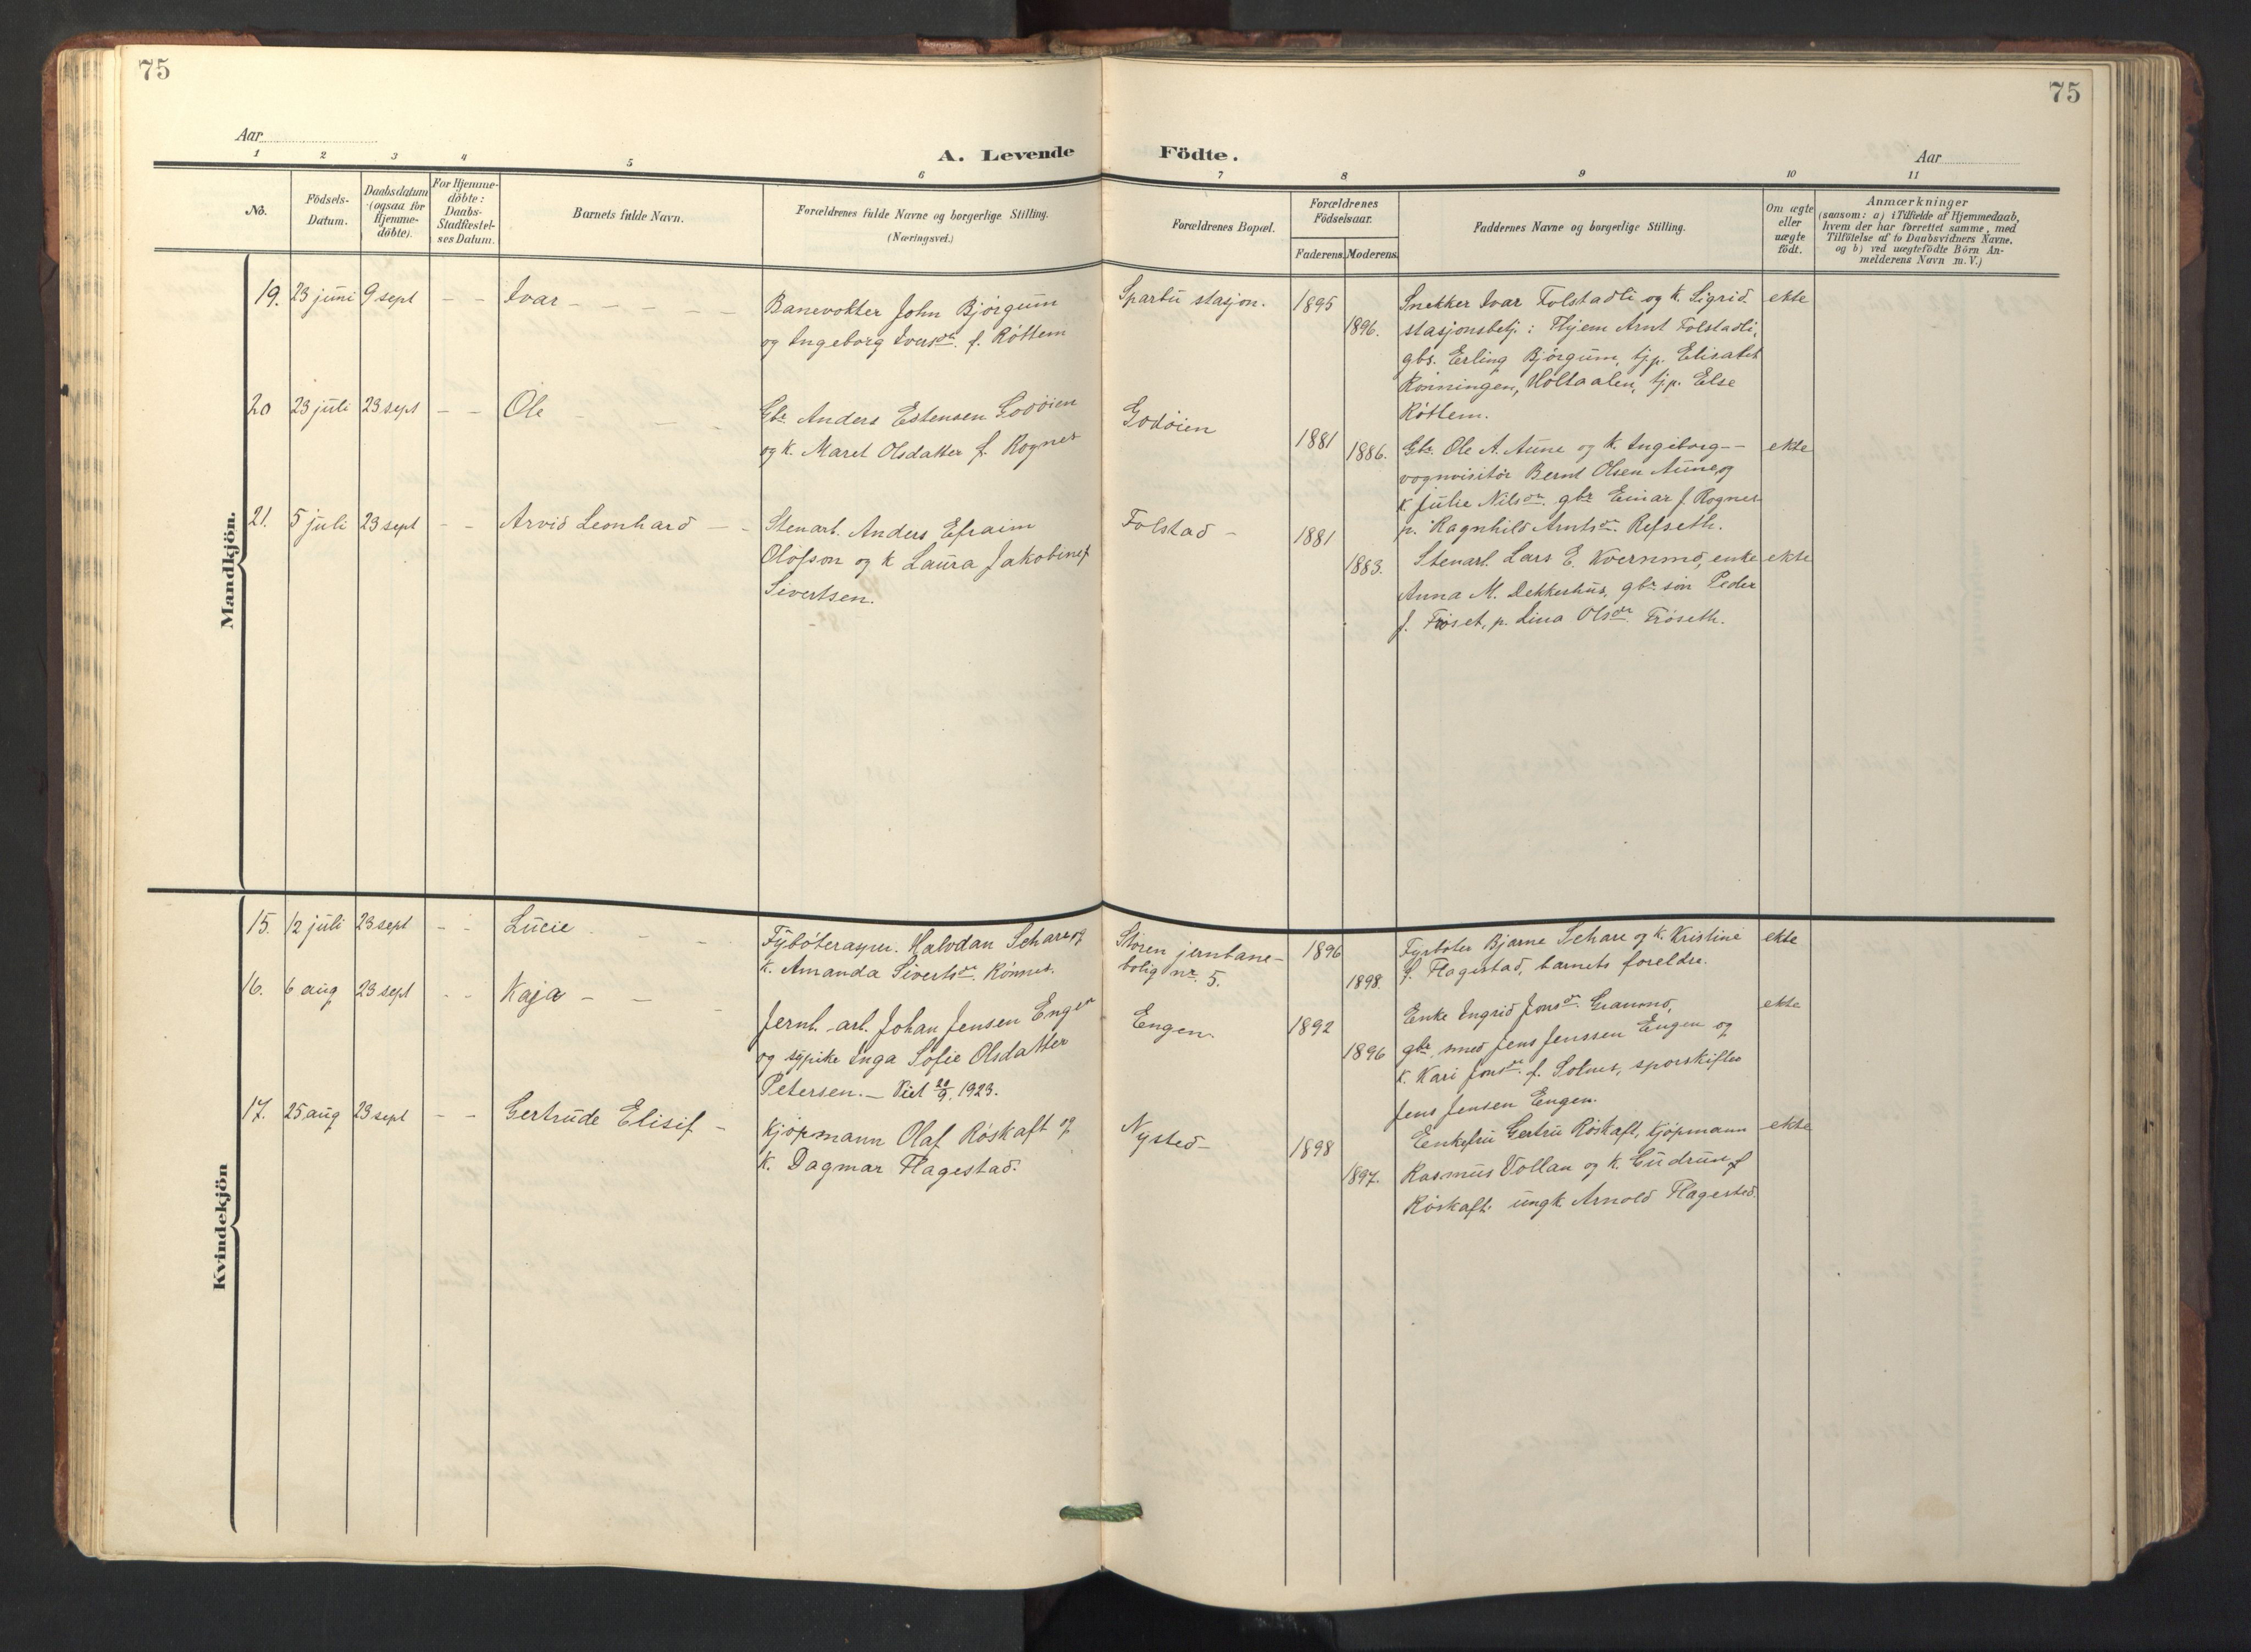 75
75
Aar
A. Levende Födte.
Aar
1 2 3 4 5 6 7 8 9 10 11
No.
Födsels-
Datum.
Daabsdatum
(ogsaa for
Hjemme-
döbte).
For Hjemme-
döbte:
Daabs-
Stadfæstel-
ses Datum.
Barnets fulde Navn.
Forældrenes fulde Navne og borgerlige Stilling.
(Næringsvei.)
Forældrenes Bopæl.
Forældrenes
Födselsaar.
Faderens.
Moderens.
Faddernes Navne og borgerlige Stilling.
Om ægte
eller
uægte
födt.
Anmærkninger
(saasom: a) i Tilfælde af Hjemmedaab,
hvem der har forrettet samme, med
Tilföielse af to Daabsvidners Navne,
og b) ved uægtefödte Börn An-
melderens Navn m. V.)
Mandkjön.
19. 23 juni 9 sept - - Ivar - - - -
Banevokter John Bjørgum
og Ingeborg Iversdr. f. Røttem
Sparbu stasjon.
1895
1896.
Snekker Ivar Folstadli og k. Sigrid.
stasjonsbetj: Hjem Arnt Folstadli,
gbs. Erling Bjørgum, tjp. Elisabet
Rønningen, Holtaalen, tjp. Else
Røttem.
ekte
20 23 juli 23 sept - - Ole - - -
Gbr. Anders Estensen Godøien
og k. Maret Olsdatter f. Rognes
Godøien
1881
1886.
Gbr. Ole A. Aune og k. Ingeborg -
vognvisitør Bernt Olsen Aune og
k. Julie Nilsdr. gbr Einar J. Rognes
p. Ragnhild Arntsdr. Refseth.
ekte
21. 5 juli 23 sept - - Arvid Leonhard - -
Stenarb. Anders Efraim
Olofson og k Laura Jakobine f
Sivertsen.
Folstad -
1881
1883.
Stenarb. Lars E. Kvernmo, enke
Anna M. Dekkerhus, gbr. søn Peder
J. Frøset, p. Lina Olsdr. Frøseth.
ekte
Kvindekjön
15. 12 juli 23 sept - - Lucie - - -
Fybøteraspir. Halvdan Schare og
k. Amanda Sivertsdr. Rønnes.
Støren jernbane-
bolig nr. 5.
1896
1898.
Fyrbøter Bjarne Schare og k. Kristine
f. Flagestad, barnets foreldre.
ekte
16. 6 aug 23 sept - - Kaja - - -
Jernb. arb. Johan Jensen Engen
og sypike Inga Sofie Olsdatter
Petersen. - Viet 22/9. 1923.
Engen.
1892
1896
Enke Ingrid Jonsdr. Graumo,
gbr. smed Jens Jenssen Engen og
k. Kari Jonsdr. f. Solnes, sporskifter
Jens Jensen Engen.
ekte
17. 25 aug 23 sept - - Gertrude Elisif -
Kjøpmann Olaf Røskaft og
k. Dagmar Flagestad.
Nysted -
1898
1897.
Enkefru Gertru Røskaft, kjøpmann
Rasmus Vollan og k. Gudrun f
Røskaft ungk. Arnold Flagested.
ekte